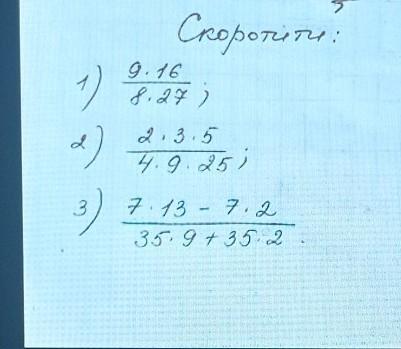 Скоротити:
1) 9·16 / 8·27 ;
2) 2·3·5 / 4·9·25 ;
3) 7·13 - 7·2 / 35·9 + 35·2 .